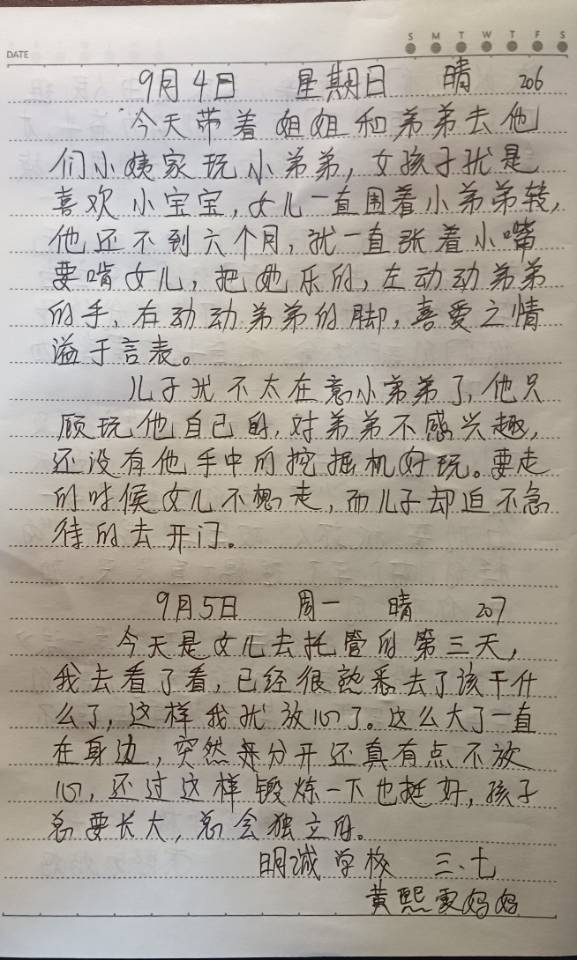 DATE
S M T W T F S
9月4日 星期日 晴 206
今天带着姐姐和弟弟去他
们小姨家玩小弟弟,女孩子就是
喜欢小宝宝,女儿一直围着小弟弟转,
他还不到六个月,就一直张着小嘴
要啃女儿,把她乐的,左动动弟弟
的手、右动动弟弟的脚,喜爱之情
溢于言表。
儿子就不太在意小弟弟了,他只
顾玩他自己的,对弟弟不感兴趣,
还没有他手中的挖掘机好玩。要走
的时候女儿不想走,而儿子却迫不急
待的去开门。
9月5日 周一 晴 207
今天是女儿去托管的第三天,
我去看了看,已经很熟悉去了该干什
么了,这样我就放心了。这么大了一直
在身边,突然分开还真有点不放
心,还过这样锻炼一下也挺好,孩子
总要长大,总会独立的。
明诚学校 三.七
黄熙雯妈妈